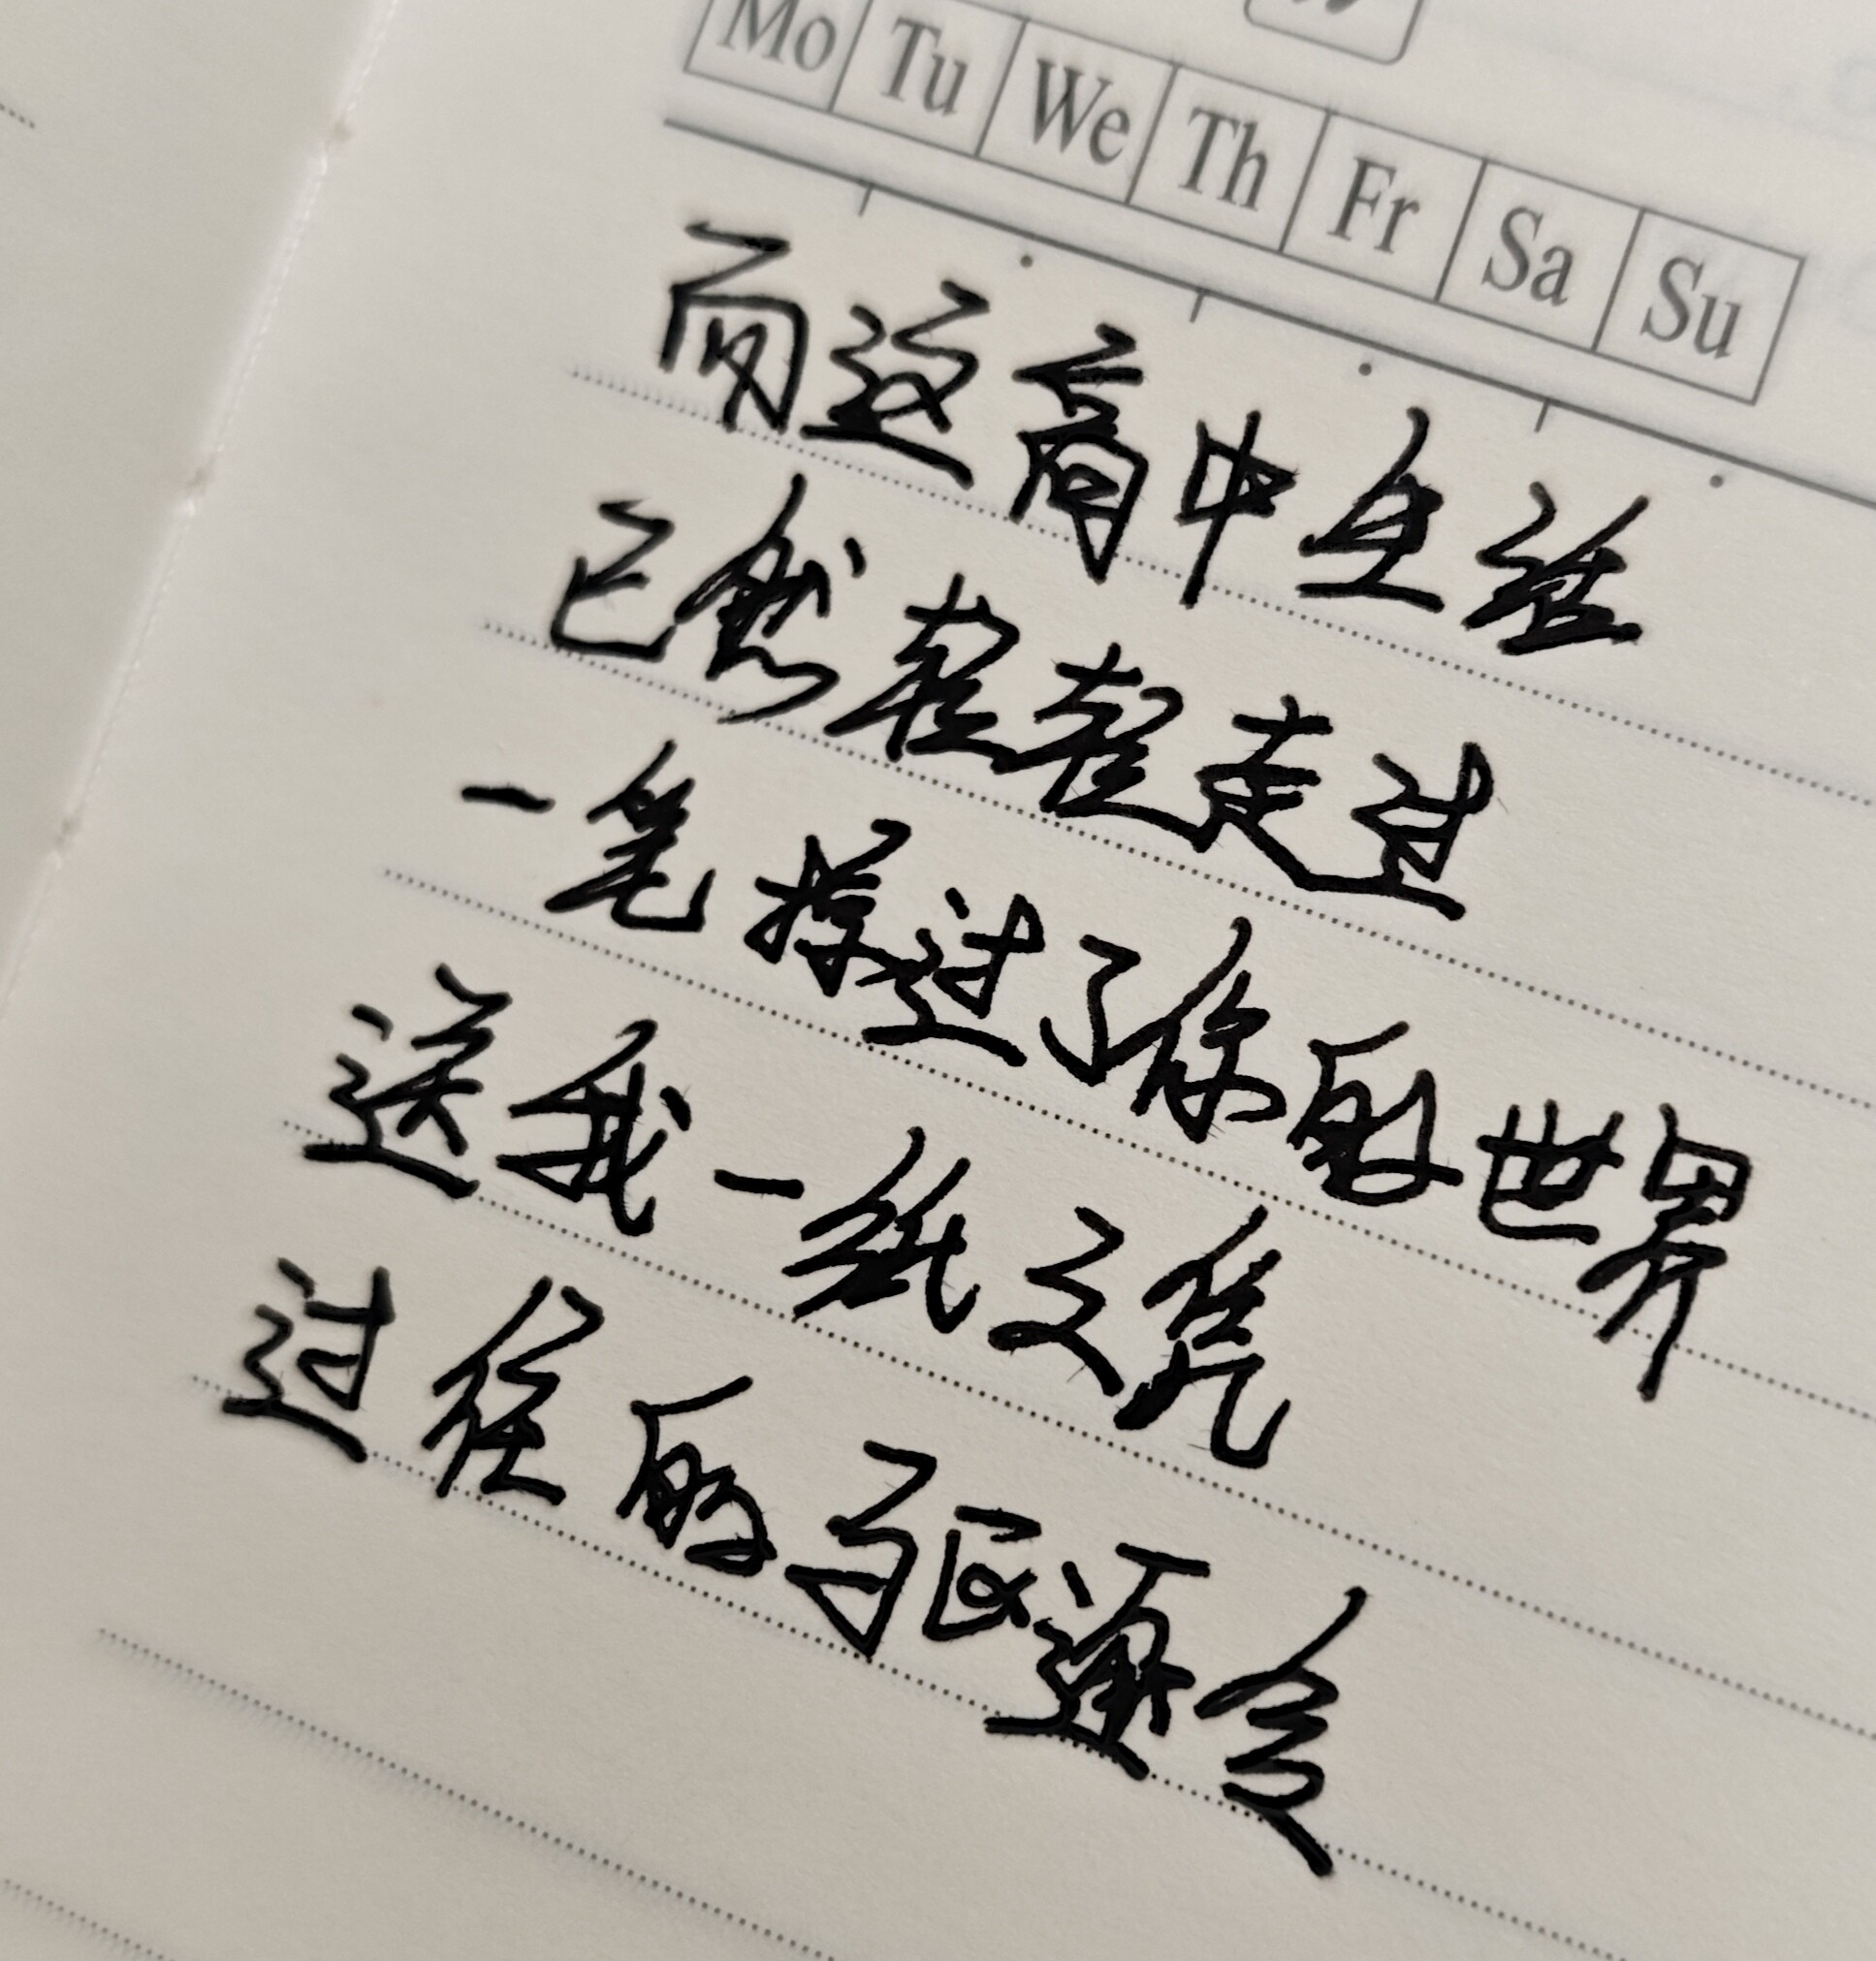 Mo Tu We Th Fr Sa Su
而这高中生活
已然整整走过
一笔掠过了你的世界
送我一纸文凭
过往的驱逐令